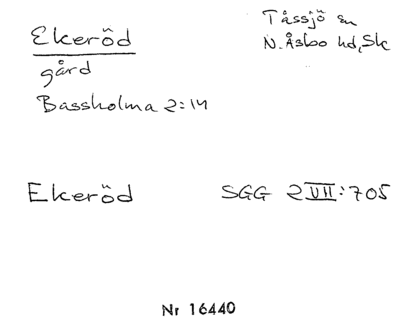 Ekeröd
Tåssjö sn
N. Åsbo hd, Sk
gård
Bassholma 2:14
Ekeröd SGG 2 VII: 705
Nr 16440